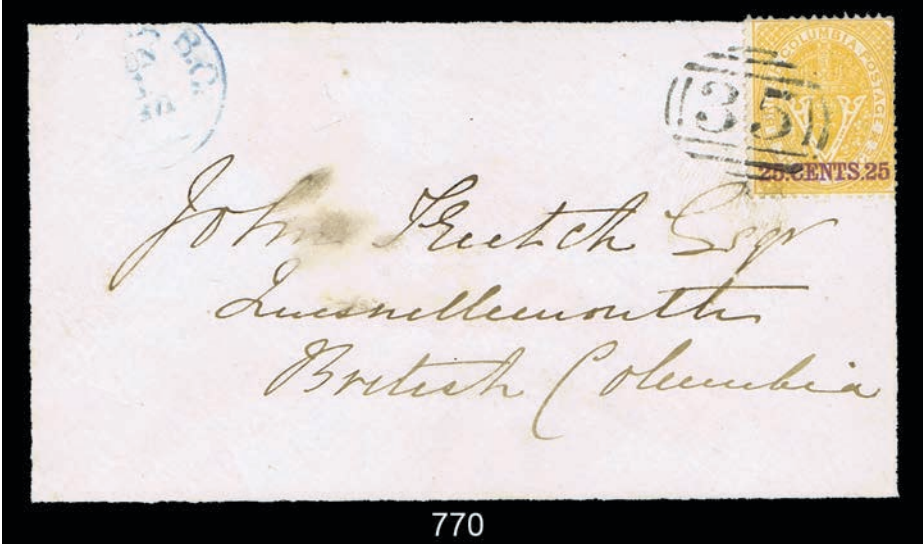 B.C.
COLUMBIA POSTAGE
35
25.CENTS.25
John
Quesnellemouth
British Columbia
770